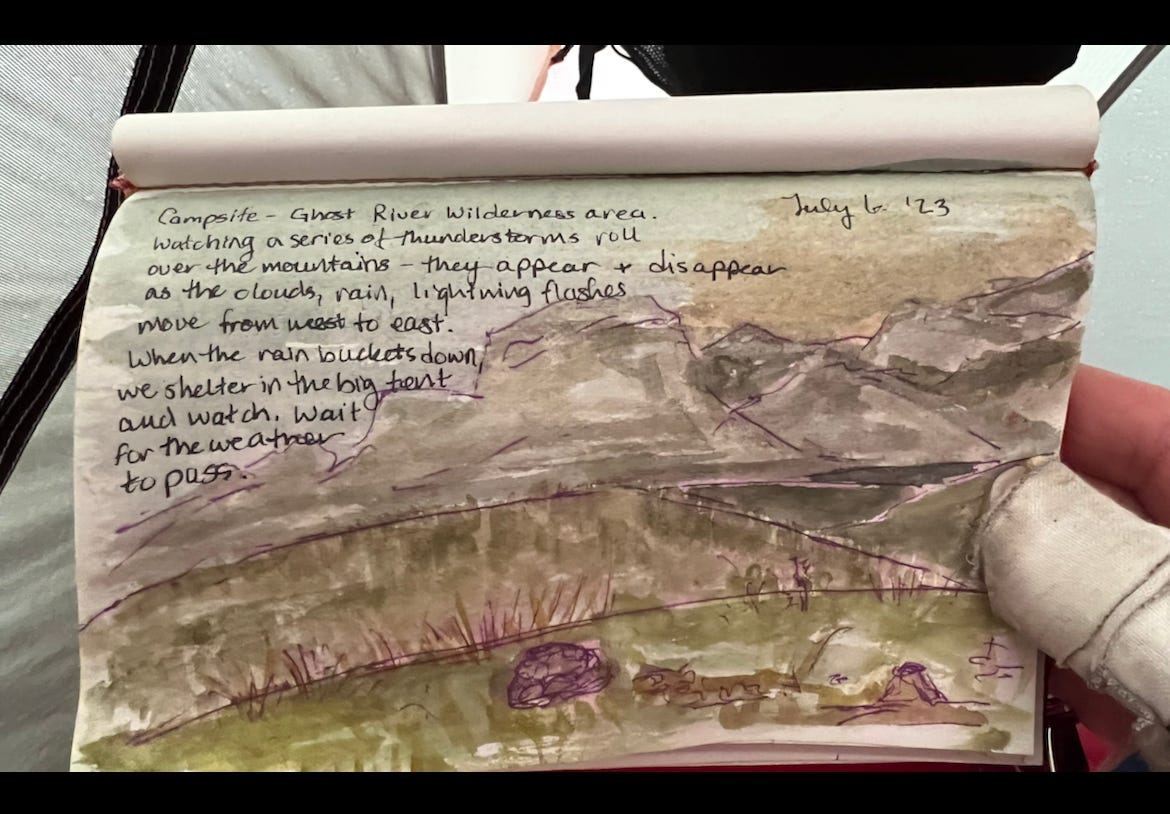 Campsite - Ghost River Wilderness area.
July 6. '23
Watching a series of thunderstorms roll
over the mountains - they appear + disappear
as the clouds, rain, lightning flashes
move from west to east.
When the rain buckets down,
we shelter in the big tent
and watch. Wait
for the weather
to pass.